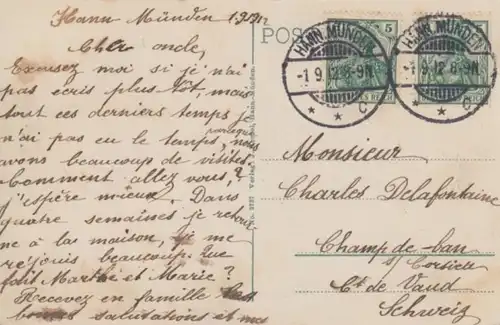 Hann Münden 1.9.12
Cher oncle,
Excusez moi si je n'ai
pas écris plus tôt, mais
tout ces derniers temps je
n'ai pas eu le temps, parceque nous
avons beaucoup de visites.
Comment allez vous?
j'espère mieux. Dans
quatre semaines je retour
ne à la maison, je me
réjouis beaucoup. Que
fait Marthe et Marie?
Recevez en famille
bonnes salutations et
POS
5
HANN. MÜNDEN
-1.9.12.8-9N
* * c
HANN. MÜNDEN
-1.9.12.8-9N
* * c
REICH
Monsieur
Charles Delafontaine
Champ-de-ban
s/ Corsier
Ct. de Vaud
Schweiz